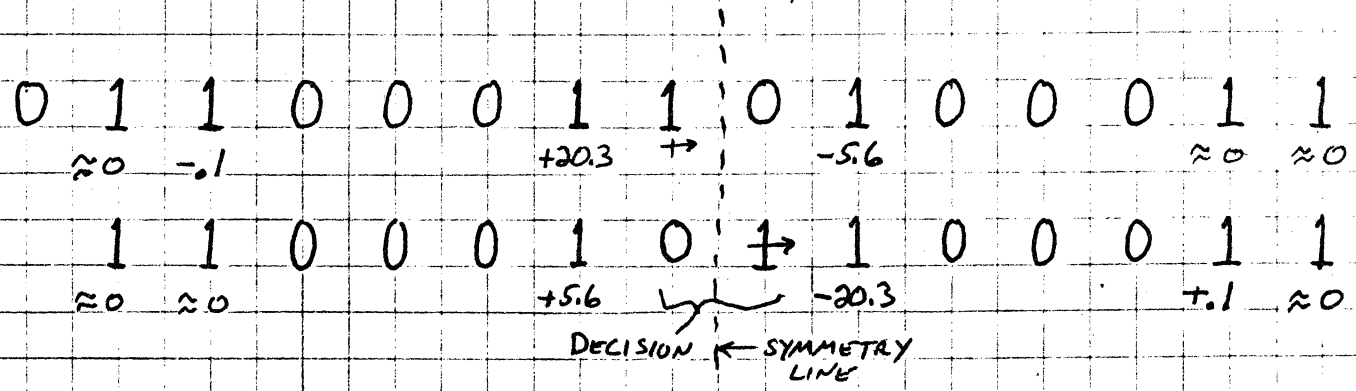 0 1 1 0 0 0 1 1 0 1 0 0 0 1 1
≈0 -.1 +20.3 → -5.6 ≈0 ≈0
1 1 0 0 0 1 0 1 → 1 0 0 0 1 1
≈0 ≈0 +5.6 -20.3 +.1 ≈0
DECISION ← SYMMETRY
LINE